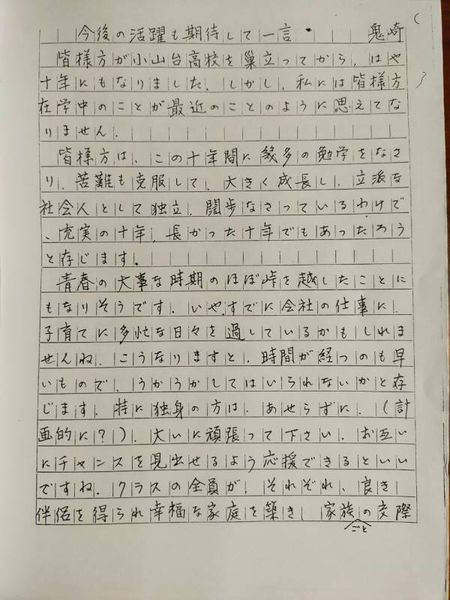 今後の活躍も期待して一言 鬼崎
皆様方が小山台高校を巣立ってから、はや
十年にもなりました。しかし、私には皆様方
在学中のことが最近のことのように思えてな
りません。
皆様方は、この十年間に幾多の勉学をなさ
り、苦難も克服して、大きく成長し、立派な
社会人として独立、闊歩なさっているわけで
、充実の十年、長かった十年でもあったろう
と存じます。
青春の大事な時期のほぼ峠を越したことに
もなりそうです。いや、すでに会社の仕事に、
子育てに多忙な日々を過しているかもしれま
せんね。こうなりますと、時間が経つのも早
いもので、うかうかしてはいられないかと存
じます。特に独身の方は、あせらずに、(計
画的に?)、大いに頑張って下さい。お互い
にチャンスを見出せるよう応援できるといい
ですね。クラスの全員が、それぞれ、良き
伴侶を得られ幸福な家庭を築き 家族の交際
ごと